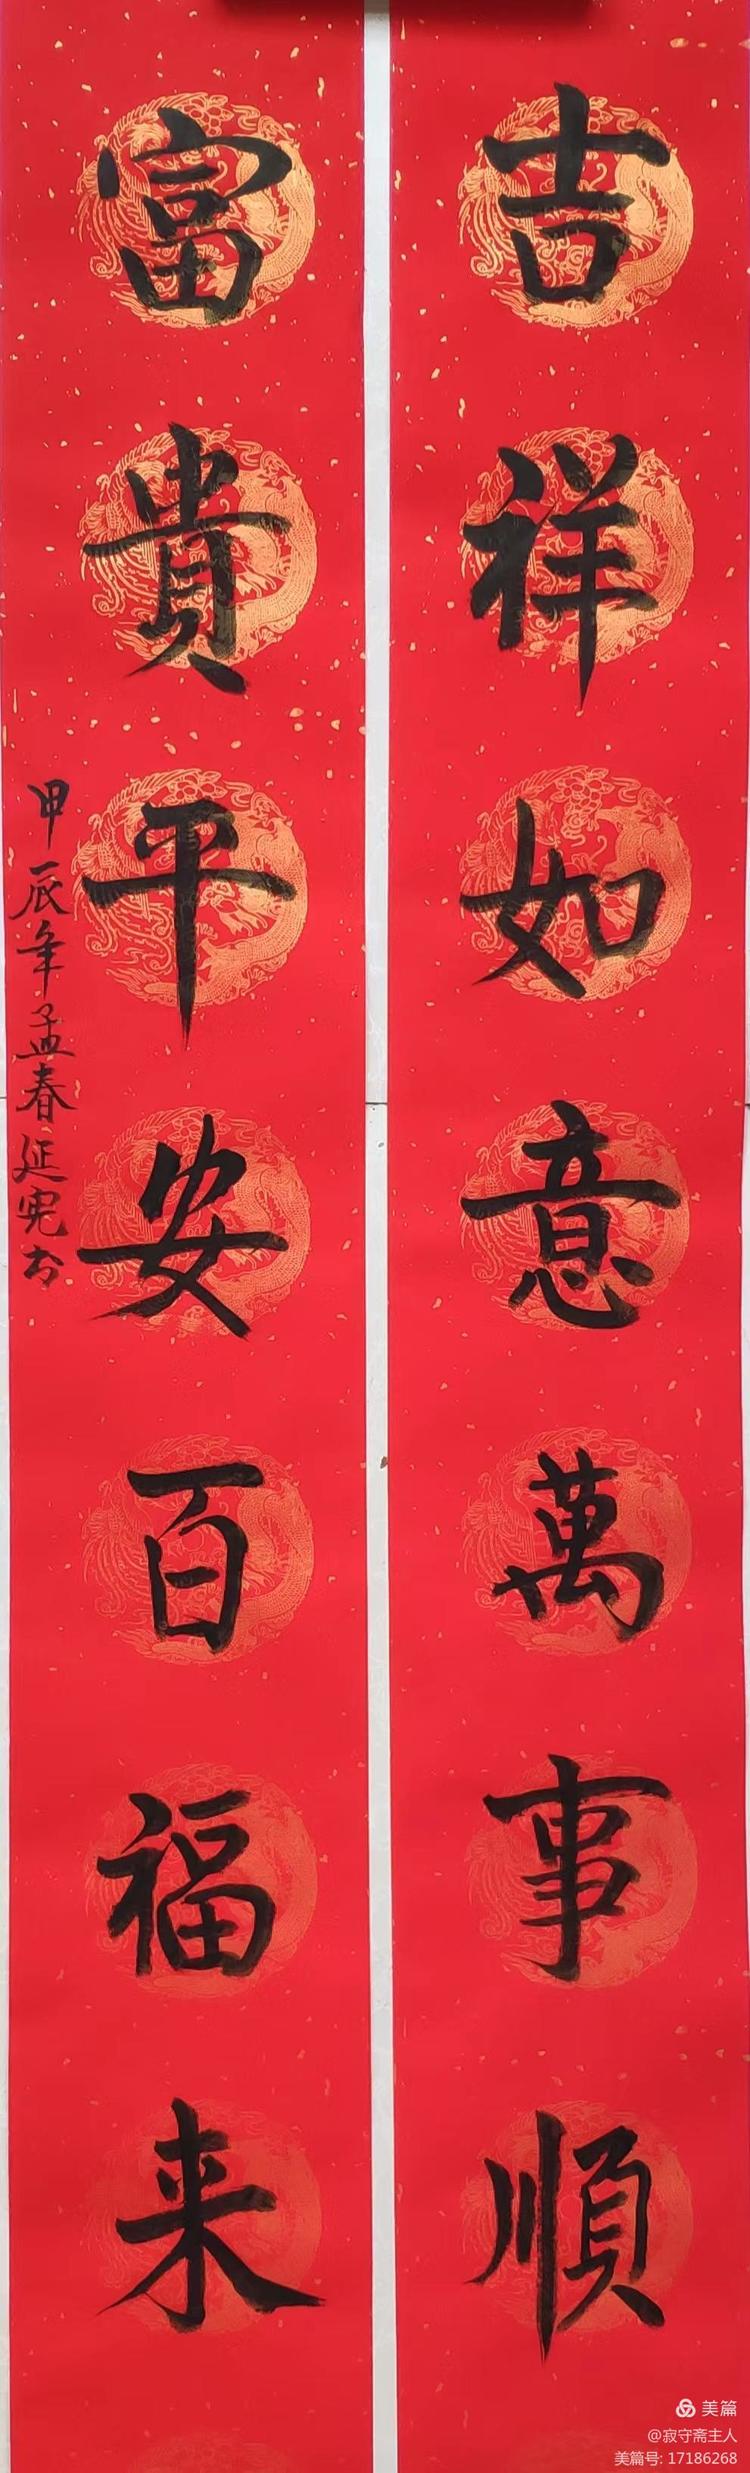 吉祥如意萬事順
富貴平安百福来
甲辰年孟春延宪书
美篇
@寂守斋主人
美篇号: 17186268